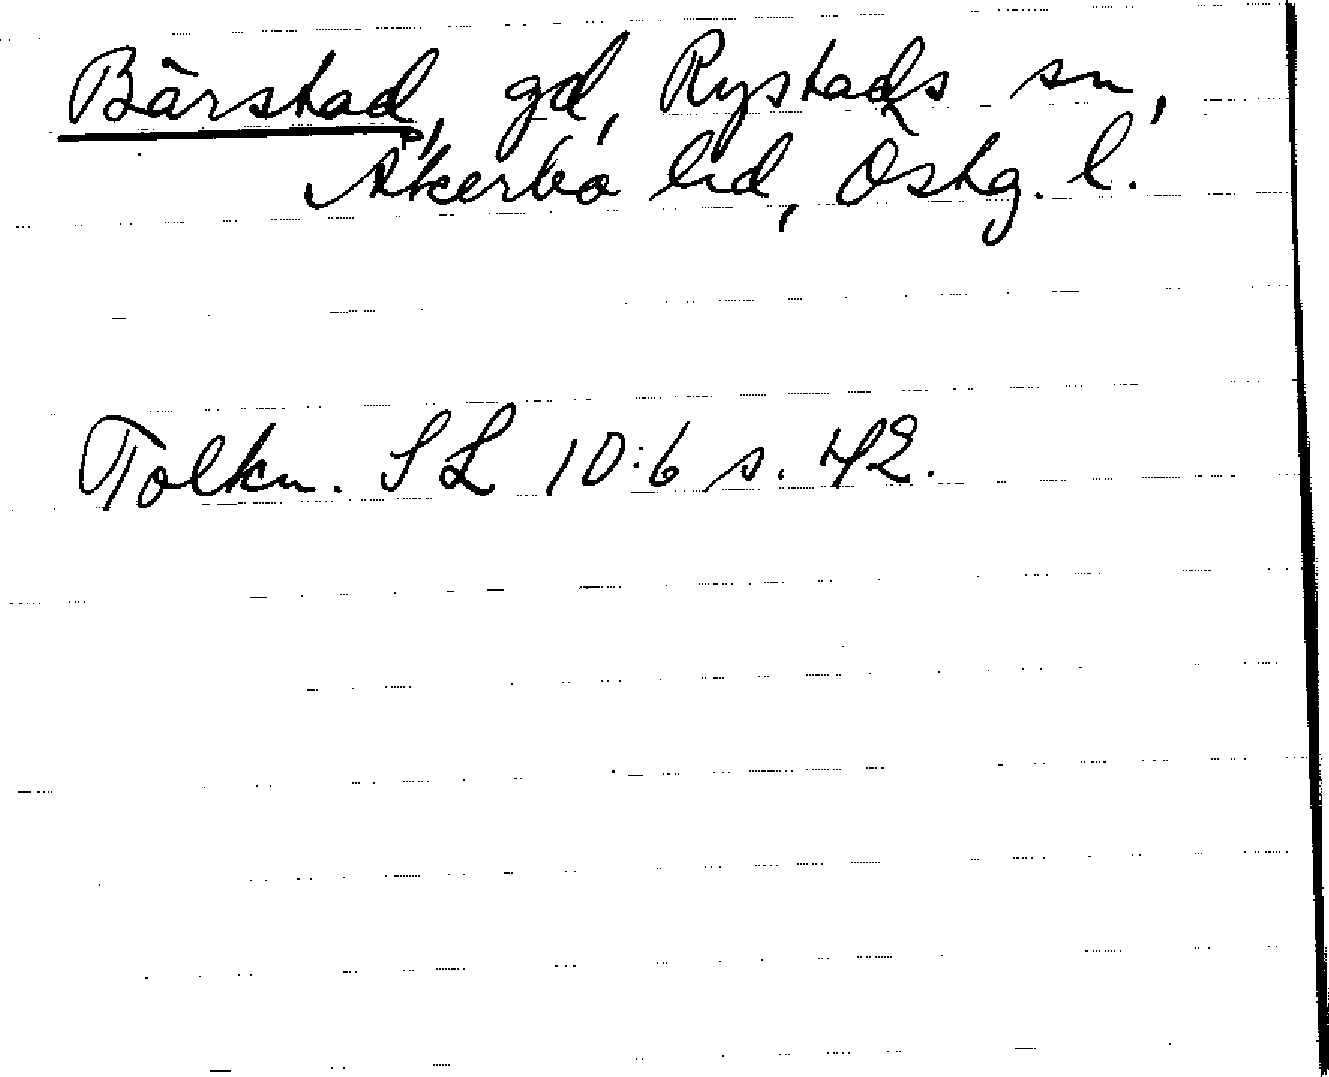 Bärstad, gd, Rystads sn,
Åkerbo hd, Östg. l.
Tolkn. SL 10:6 s. 42.